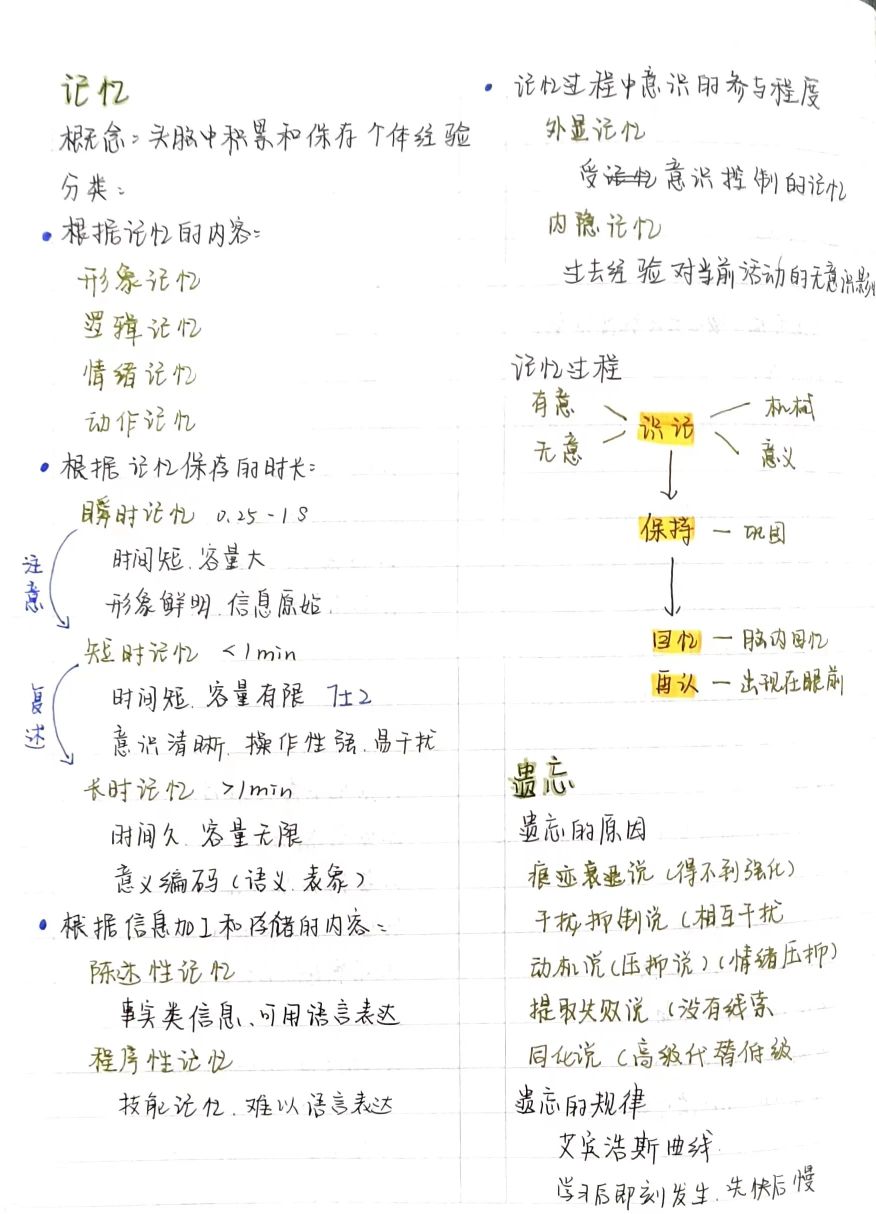 记忆
概念：头脑中积累和保存个体经验
分类：
• 根据记忆的内容：
形象记忆
逻辑记忆
情绪记忆
动作记忆
• 根据记忆保存的时长：
瞬时记忆 0.25-1s
时间短、容量大
形象鲜明、信息原始
注意
短时记忆 <1min
时间短、容量有限 7±2
意识清晰、操作性强、易干扰
复述
长时记忆 >1min
时间久、容量无限
意义编码（语义、表象）
• 根据信息加工和存储的内容：
陈述性记忆
事实类信息、可用语言表达
程序性记忆
技能记忆、难以语言表达
• 记忆过程中意识的参与程度
外显记忆
受记忆意识控制的记忆
内隐记忆
过去经验对当前活动的无意识影
记忆过程
有意
无意
识记
机械
意义
保持 — 巩固
回忆 — 脑内回忆
再认 — 出现在眼前
遗忘
遗忘的原因
痕迹衰退说（得不到强化）
干扰抑制说（相互干扰
动机说（压抑说）（情绪压抑）
提取失败说（没有线索
同化说（高级代替低级
遗忘的规律
艾宾浩斯曲线
学习后即刻发生、先快后慢